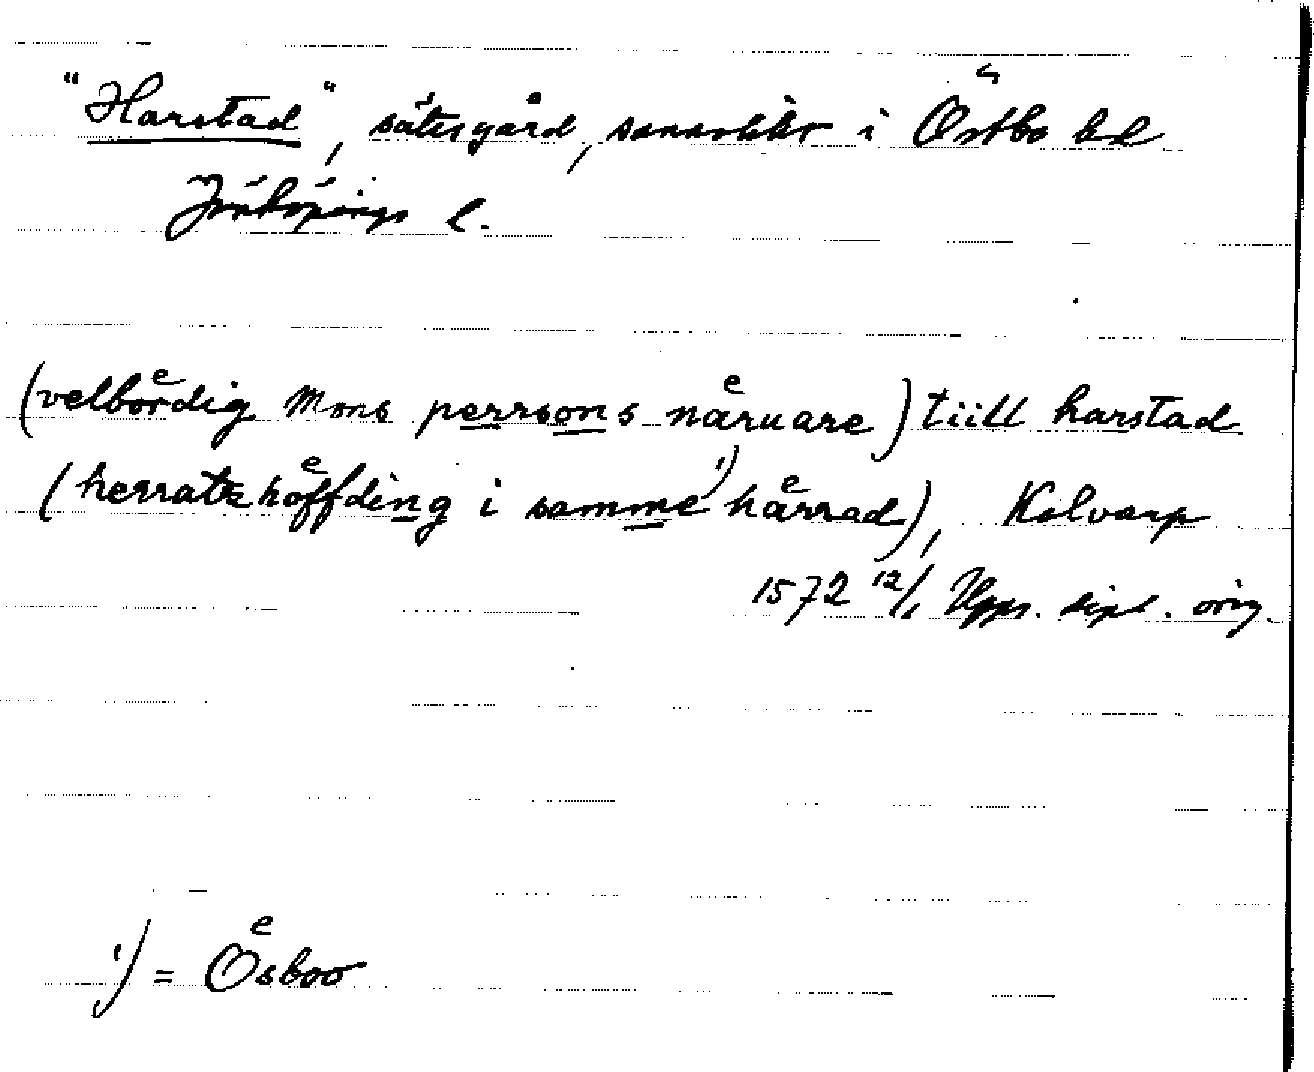 "Harstad", sätesgård, sannolikt i Östbo hd
Jönköpings l.
(velboͤrdig Mons perssons naͤruare) tiill harstad
(herratzhoͤffding i samme¹⁾ haͤrrad), Kolvarp
1572 12/1 Upps. dipl. orig.
¹⁾ = Oͤsboo